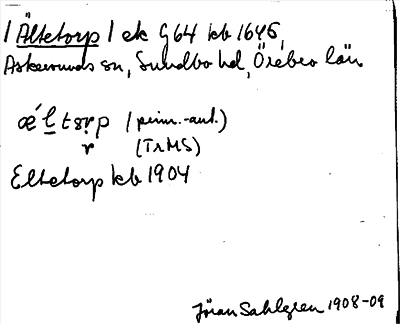 / Ältetorp / ek G64 kb 1646,
Askersunds sn, Sundbo hd, Örebro län
ǽltsrp / prim.-aut.)
r (TrMS)
Eltetorp kb 1904
Jöran Sahlgren 1908-09